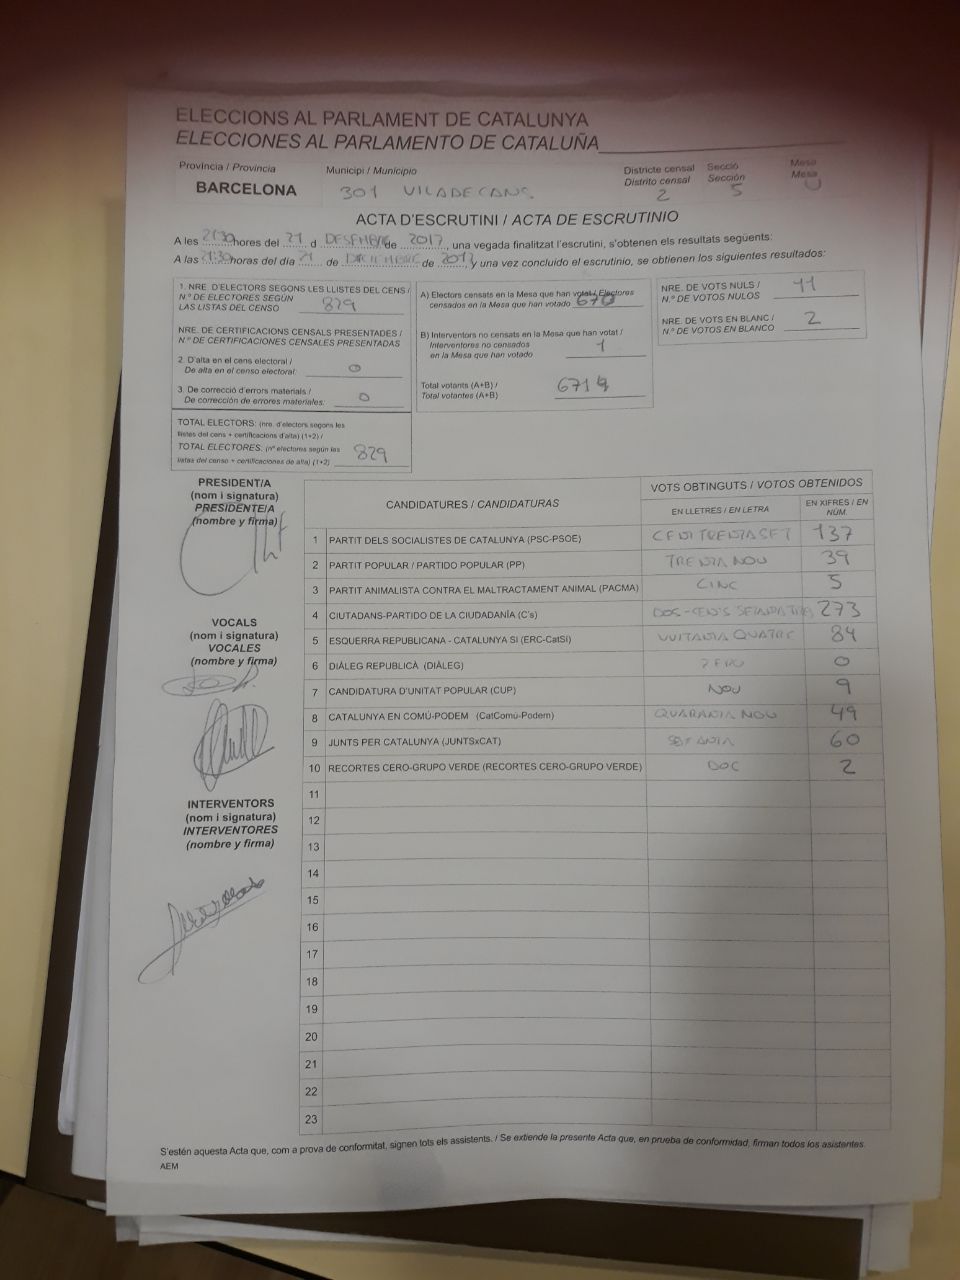 ELECCIONS AL PARLAMENT DE CATALUNYA
ELECCIONES AL PARLAMENTO DE CATALUÑA
Provincia / Provincia
BARCELONA
Municipi / Municipio
301 VILADECANS
Districte censal
Distrito censal
2
Secció
Sección
5
Mesa
Mesa
U
ACTA D'ESCRUTINI / ACTA DE ESCRUTINIO
A les 21:30 hores del 21 d DESEMBRE de 2017, una vegada finalitzat l'escrutini, s'obtenen els resultats següents:
A las 21:30 horas del día 21 de DICIEMBRE de 2017 y una vez concluido el escrutinio, se obtienen los siguientes resultados:
1. NRE. D'ELECTORS SEGONS LES LLISTES DEL CENS /
N.º DE ELECTORES SEGÚN
LAS LISTAS DEL CENSO 829
NRE. DE CERTIFICACIONS CENSALS PRESENTADES /
N.º DE CERTIFICACIONES CENSALES PRESENTADAS
2. D'alta en el cens electoral /
De alta en el censo electoral: 0
3. De correcció d'errors materials /
De corrección de errores materiales: 0
TOTAL ELECTORS: (nre. d'electors segons les
llistes del cens + certificacions d'alta) (1+2) /
TOTAL ELECTORES: (nº electores según las
listas del censo + certificaciones de alta) (1+2) 829
A) Electors censats en la Mesa que han votat / Electores
censados en la Mesa que han votado
B) Interventors no censats en la Mesa que han votat /
Interventores no censados
en la Mesa que han votado 1
Total votants (A+B) /
Total votantes (A+B)
NRE. DE VOTS NULS /
N.º DE VOTOS NULOS 11
NRE. DE VOTS EN BLANC /
N.º DE VOTOS EN BLANCO 2
PRESIDENT/A
(nom i signatura)
PRESIDENTE/A
(nombre y firma)
VOCALS
(nom i signatura)
VOCALES
(nombre y firma)
INTERVENTORS
(nom i signatura)
INTERVENTORES
(nombre y firma)
CANDIDATURES / CANDIDATURAS
VOTS OBTINGUTS / VOTOS OBTENIDOS
EN LLETRES / EN LETRA
EN XIFRES / EN NÚM.
1 PARTIT DELS SOCIALISTES DE CATALUNYA (PSC-PSOE) CENT TRENTA SET 137
2 PARTIT POPULAR / PARTIDO POPULAR (PP) TRENTA NOU 39
3 PARTIT ANIMALISTA CONTRA EL MALTRACTAMENT ANIMAL (PACMA) CINC 5
4 CIUTADANS-PARTIDO DE LA CIUDADANÍA (C's) DOS-CENTS 273
5 ESQUERRA REPUBLICANA - CATALUNYA SI (ERC-CatSí) VUITANTA QUATRE 84
6 DIÀLEG REPUBLICÀ (DIÀLEG) ZERO 0
7 CANDIDATURA D'UNITAT POPULAR (CUP) NOU 9
8 CATALUNYA EN COMÚ-PODEM (CatComú-Podem) QUARANTA NOU 49
9 JUNTS PER CATALUNYA (JUNTSxCAT) 60
10 RECORTES CERO-GRUPO VERDE (RECORTES CERO-GRUPO VERDE) DOC 2
11
12
13
14
15
16
17
18
19
20
21
22
23
S'estén aquesta Acta que, com a prova de conformitat, signen tots els assistents. / Se extiende la presente Acta que, en prueba de conformidad, firman todos los asistentes.
AEM